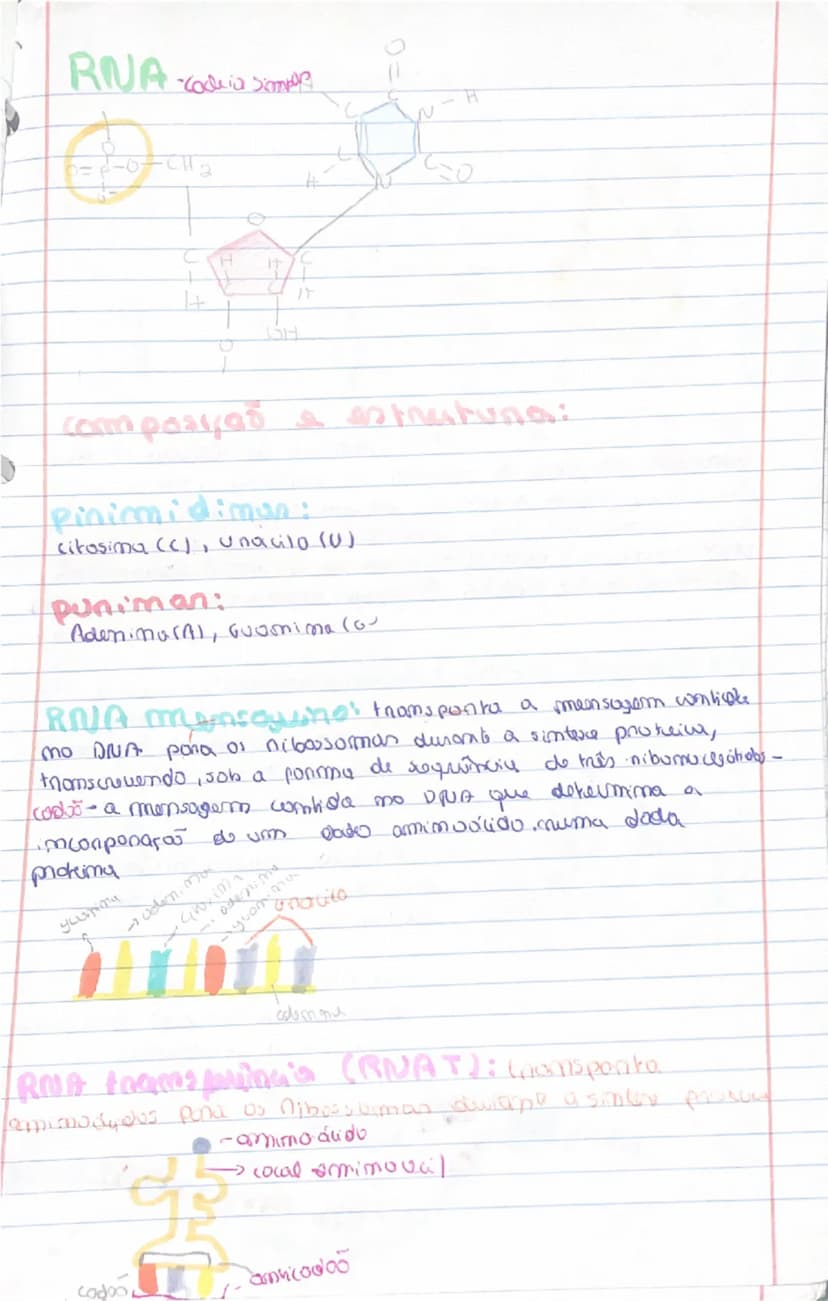 RNA - cadeia simples
O
C
C
N - H
O
O = P - O - CH2
O-
C
H
N
C = O
O
C H H C
H C C H
OH
O
composição e estrutura:
pirimidinas:
citosina (C), uracilo (U)
purinas:
Adenina (A), Guanina (G
RNA mensageiro: transporta a mensagem contida
no DNA para os ribossomas durante a síntese proteica,
transcrevendo, sob a forma de sequência de três ribonucleótidos -
codão - a mensagem contida no DNA que determina a
incorporação de um dado aminoácido numa dada
proteína
guanina adenina citosina adenina guanina uracilo
adenina
RNA transferência (RNAT): transporta
aminoácidos para os ribossomas durante a síntese proteica
- aminoácido
local aminoacil
anticodão
codão